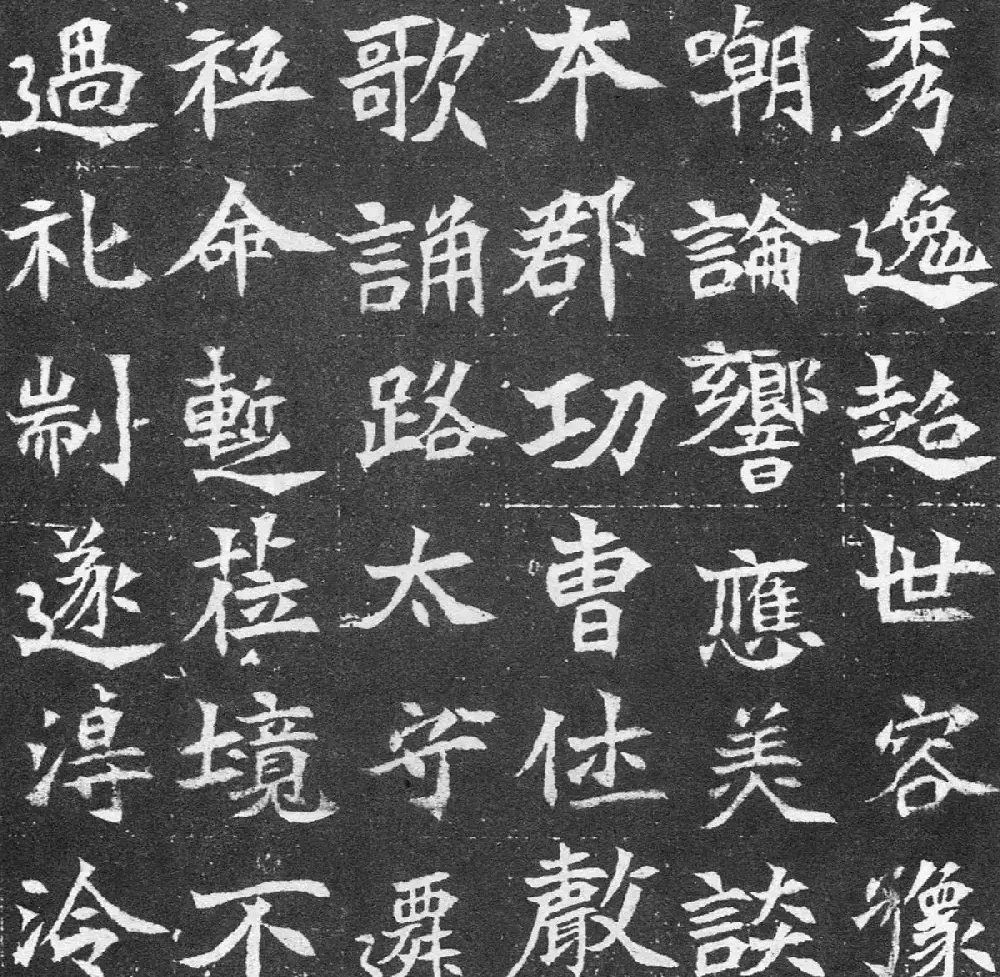 秀逸超世容豫
嘲論響應美談
本郡功曹休聲
歌誦路太守遷
祗命蹔莅境不
過礼制遂淂泠